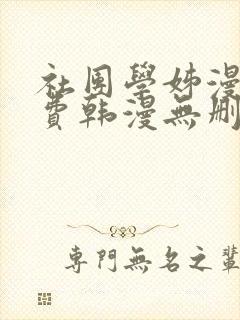 社团學姊漫
費韩漫無删
專門無名之輩